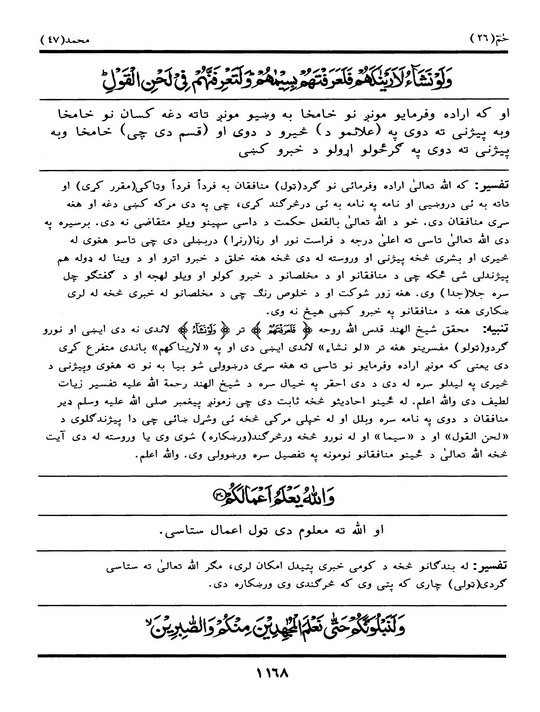 حٰمٓ(٢٦)
محمد(٤٧)
وَلَوْ نَشَآءُ لَاَرَيْنٰكَهُمْ فَلَعَرَفْتَهُمْ بِسِيْمٰهُمْ وَلَتَعْرِفَنَّهُمْ فِيْ لَحْنِ الْقَوْلِ
او که اراده وفرمايو مونږ نو خامخا به وښيو مونږ تاته دغه کسان نو خامخا
وبه پيژنی ته دوی په (علائمو د) څيرو د دوی او (قسم دی چی) خامخا وبه
پيژنی ته دوی په گرځولو اړولو د خبرو کښی
تفسير: که الله تعالیٰ اراده وفرمائی نو گرد(ټول) منافقان به فرداً فرداً وټاکی(مقرر کړی) او
تاته به ئی دروښيی او نامه په نامه به ئی درڅرگند کړی، چی په دی مرکه کښی دغه او هغه
سړی منافقان دی. خو د الله تعالیٰ بالفعل حکمت د داسی سپينو ويلو متقاضی نه دی. برسيره په
دی الله تعالیٰ تاسی ته اعلیٰ درجه د فراست نور او رڼا(رنرا) دربښلی دی چی تاسو هغوی له
څيری او بشری څخه پيژنی او وروسته له دی څخه هغه خلق د خبرو اترو او د وينا له ډوله هم
پيژندلی شی ځکه چی د منافقانو او د مخلصانو د خبرو کولو او ويلو لهجه او د گفتگو چل
سره جلا(جدا) وی. هغه زور شوکت او د خلوص رنگ چی د مخلصانو له خبری څخه له لری
ښکاری هغه د منافقانو په خبرو کښی هيڅ نه وی.
تنبيه: محقق شيخ الهند قدس الله روحه ﴿ فَلَعَرَفْتَهُمْ ﴾ تر ﴿ وَلَوْ نَشَآءُ ﴾ لاندی نه دی ايښی او نورو
گردو(ټولو) مفسرينو هغه تر «لو نشاء» لاندی ايښی دی او په «لاريناكهم» باندی متفرع کړی
دی يعنی که مونږ اراده وفرمايو نو تاسی ته هغه سړی درښوولی شو بيا به نو ته هغوی وپيژنی د
څيری په ليدلو سره له دی د دی احقر په خيال سره د شيخ الهند رحمة الله عليه تفسير زيات
لطيف دی والله اعلم. له ځينو احاديثو څخه ثابت دی چی زمونږ پيغمبر صلی الله عليه وسلم ډير
منافقان د دوی په نامه سره وبلل او له خپلی مرکی څخه ئی وشړل ښائی چی دا پيژندگلوی د
«لحن القول» او د «سيما» او له نورو څخه ورڅرگند(ورښکاره) شوی وی يا وروسته له دی آيت
څخه الله تعالیٰ د ځينو منافقانو نومونه په تفصيل سره ورښوولی وی. والله اعلم.
وَاللّٰهُ يَعْلَمُ اَعْمَالَكُمْ
او الله ته معلوم دی ټول اعمال ستاسی.
تفسير: له بندگانو څخه د کومی خبری پټيدل امکان لری، مگر الله تعالیٰ ته ستاسی
گردی(ټولی) چاری که پټی وی که څرگندی وی ورښکاره دی.
وَلَنَبْلُوَنَّكُمْ حَتّٰى نَعْلَمَ الْمُجٰهِدِيْنَ مِنْكُمْ وَالصّٰبِرِيْنَ
١١٦٨